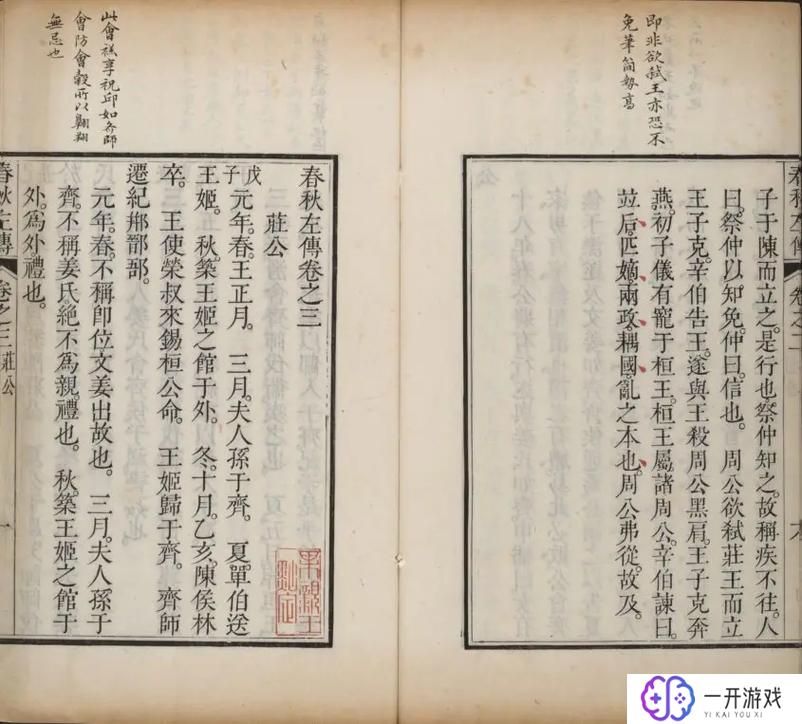 春秋左傳 卷之二
即非欲弑王亦恐不
免筆簡勢高
子于陳而立之。是行也。祭仲知之。故稱疾不往。人
曰。祭仲以知免。仲曰。信也。 周公欲弑莊王而立
王子克。辛伯告王。遂與王殺周公黑肩。王子克奔
燕。初子儀有寵于桓王。桓王屬諸周公。辛伯諫曰。
竝后。匹嫡。兩政。耦國。亂之本也。周公弗從。故及。
此會禚享祝邱如齊師
會防會穀所以翺翔
無忌也
春秋左傳卷之三
莊公
戊子 元年。春。王正月。 三月。夫人孫于齊。 夏。單伯送
王姬。 秋。築王姬之館于外。 冬。十月。乙亥。陳侯林
卒。 王使榮叔來錫桓公命。 王姬歸于齊。 齊師
遷紀郱鄑郚。
元年。春。不稱卽位。文姜出故也。 三月。夫人孫于
齊。不稱姜氏。絕不爲親。禮也。 秋。築王姬之館于
外。爲外禮也。
春秋左傳 卷之三 莊公 一
果親王點定
一开游戏
YI KAI YOU XI